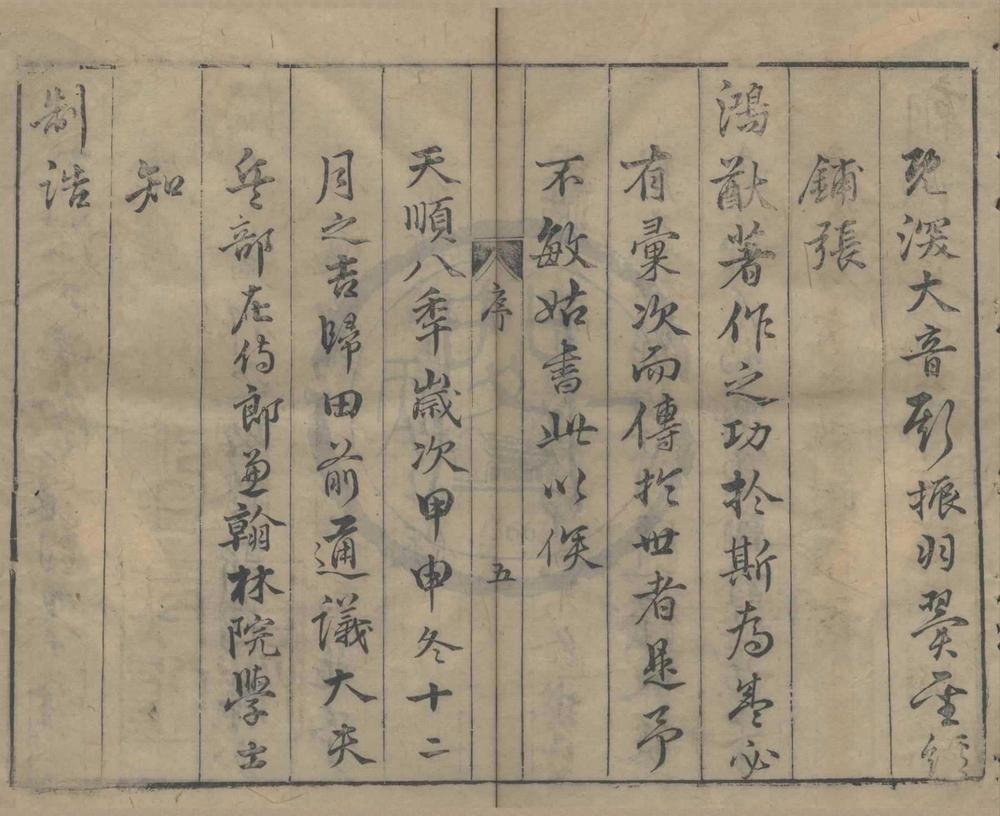 既深大音彰振羽翼聖經
鋪張
鴻猷著作之功於斯為盛必
有彙次而傳於世者是予
不敏姑書此以俟
序 五
天順八季歲次甲申冬十二
月之吉歸田前通議大夫
兵部左侍郎兼翰林院學士
知
制誥